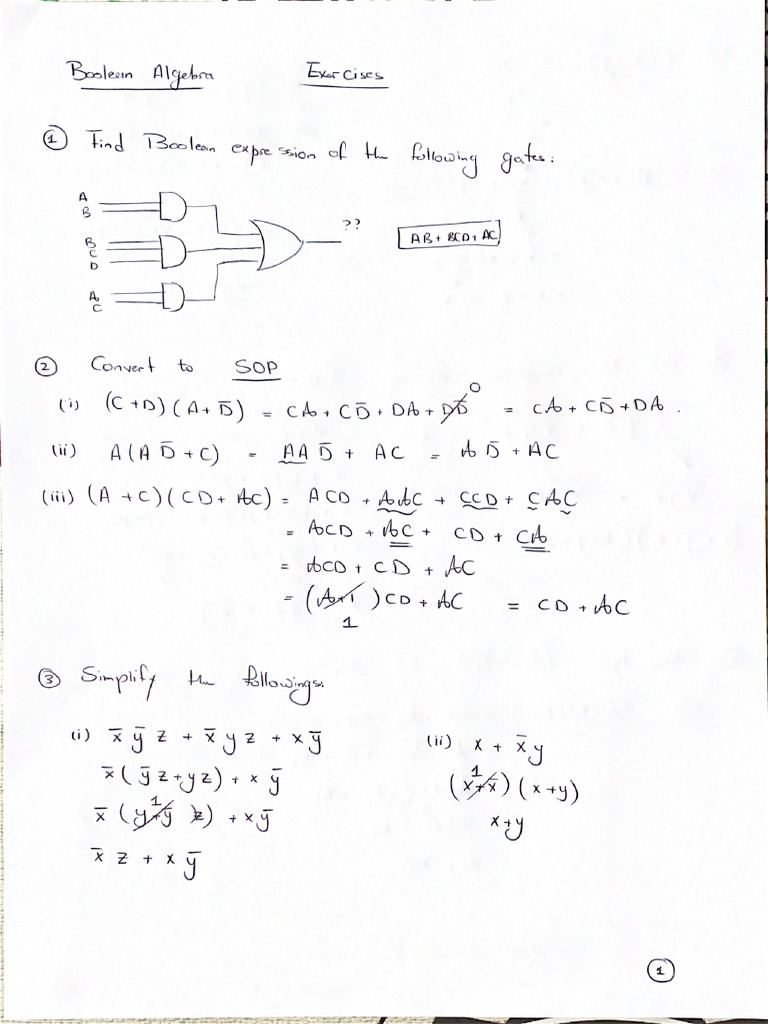 Boolean Algebra Exercises
① Find Boolean expression of the following gates:
A
B
B
C
D
A
C
??
AB + BCD + AC
② Convert to SOP
(i) (C + D)(A + D̅) = CA + CD̅ + DA + DD̅ 0 = CA + CD̅ + DA .
(ii) A(A D̅ + C) = AA D̅ + AC = A D̅ + AC
(iii) (A + C)(CD + AC) = ACD + AAC + CCD + CAC
= ACD + AC + CD + CA
= ACD + CD + AC
= (A+1)CD + AC = CD + AC
1
③ Simplify the followings:
(i) x̅ y̅ z + x̅ y z + x y̅
x̅ ( y̅ z + y z) + x y̅
1
x̅ (y + y̅ z) + x y̅
x̅ z + x y̅
(ii) x + x̅ y
1
(x + x̅)(x + y)
x + y
①